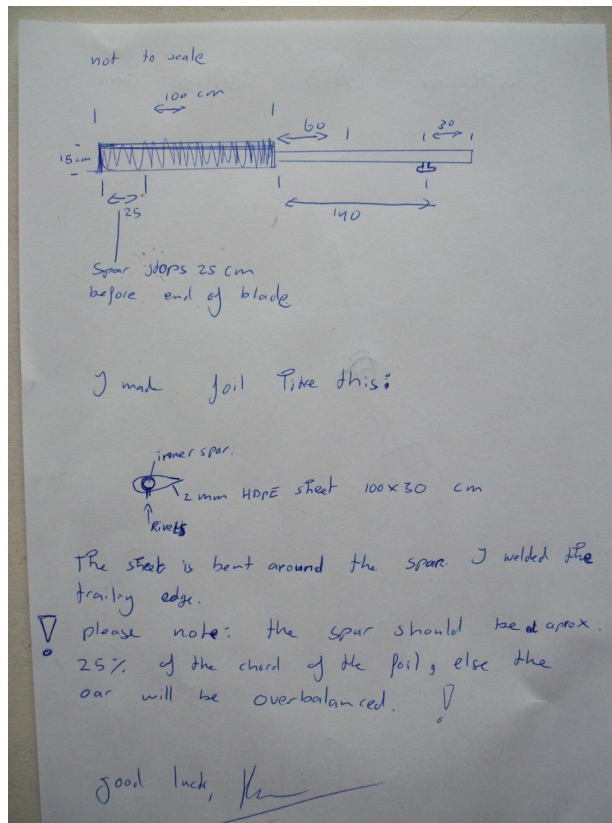 not to scale
100 cm
60
30
15 cm
25
140
Spar stops 25 cm
before end of blade
I made foil like this:
inner spar.
2 mm HDPE sheet 100x30 cm
Rivets
The sheet is bent around the spar. I welded the
trailing edge.
! please note: the spar should be at aprox.
25% of the chord of the foil, else the
oar will be overbalanced. !
good luck,